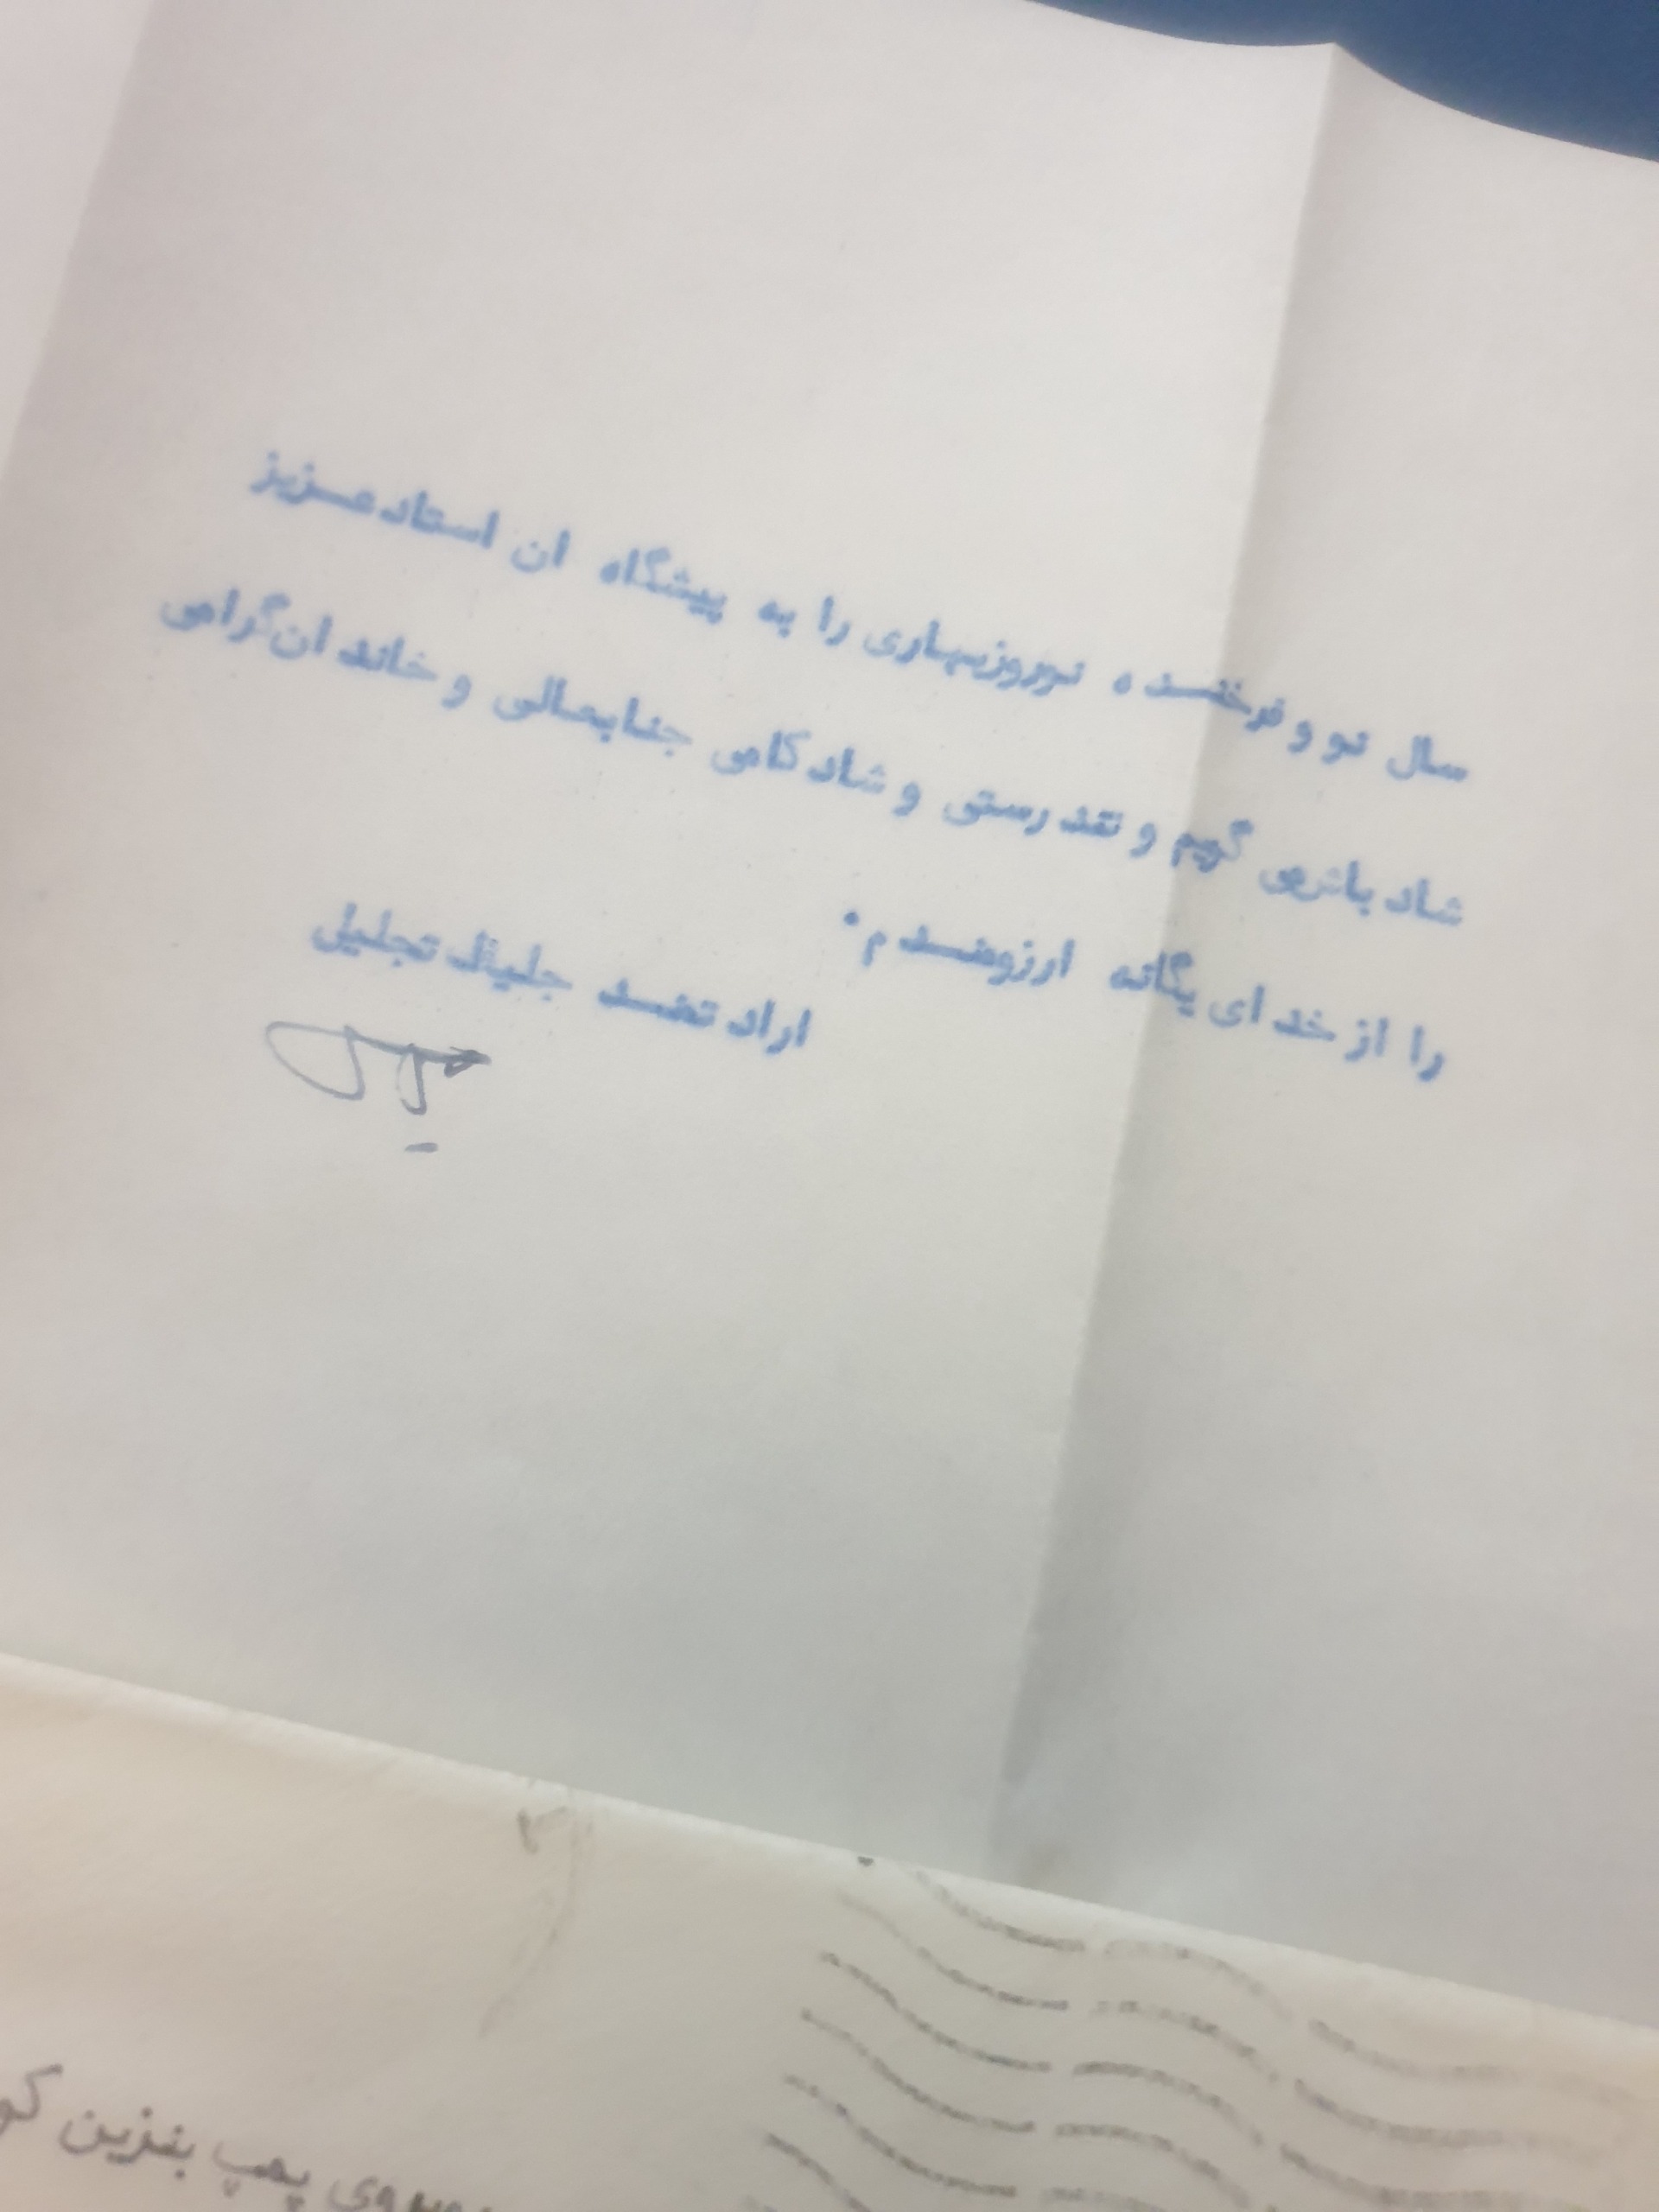 سال نو و فرخنده نوروزبهاری را به پیشگاه ان استادعزیز
شادباش می گویم و تندرستی و شادکامی جنابعالی و خاندان گرامی
را از خدای یگانه ارزومندم.
ارادتمند جلیل تجلیل
روی پمپ بنزین